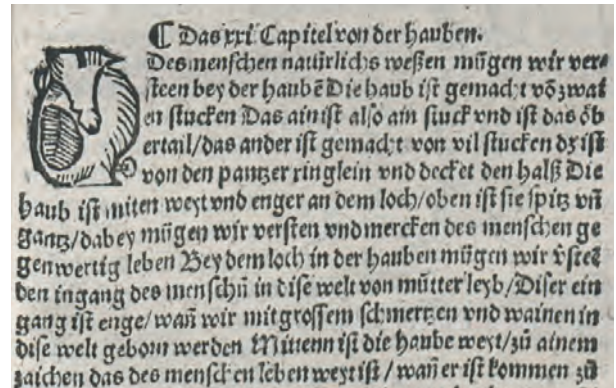 ¶ Das xxi Capitel von der hauben.
Des menschen natüꝛlichs weßen mügen wir ver⸗
steen bey der haubē Die haub ist gemacht vō zwai
en stucken Das ain ist also ain stuck vnd ist das öb
ertail/das ander ist gemacht von vil stucken dz ist
von den pantzer ringlein vnd decket den halß Die
haub ist miten weyt vnd enger an dem loch/oben ist sie spitz vñ
gantz/dabey mügen wir versten vnd mercken des menschen ge
genwertig leben Bey dem loch in der hauben mügen wir v̄steē
den ingang des menschñ in dise welt von mütter leyb/Diser ein
gang ist enge/wañ wir mit grossem schmertzen vnd wainen in
dise welt geboꝛn werden Mittenn ist die haube weyt/zů ainem
zaichen das des menschen leben weyt ist/wañ er ist kommen zů